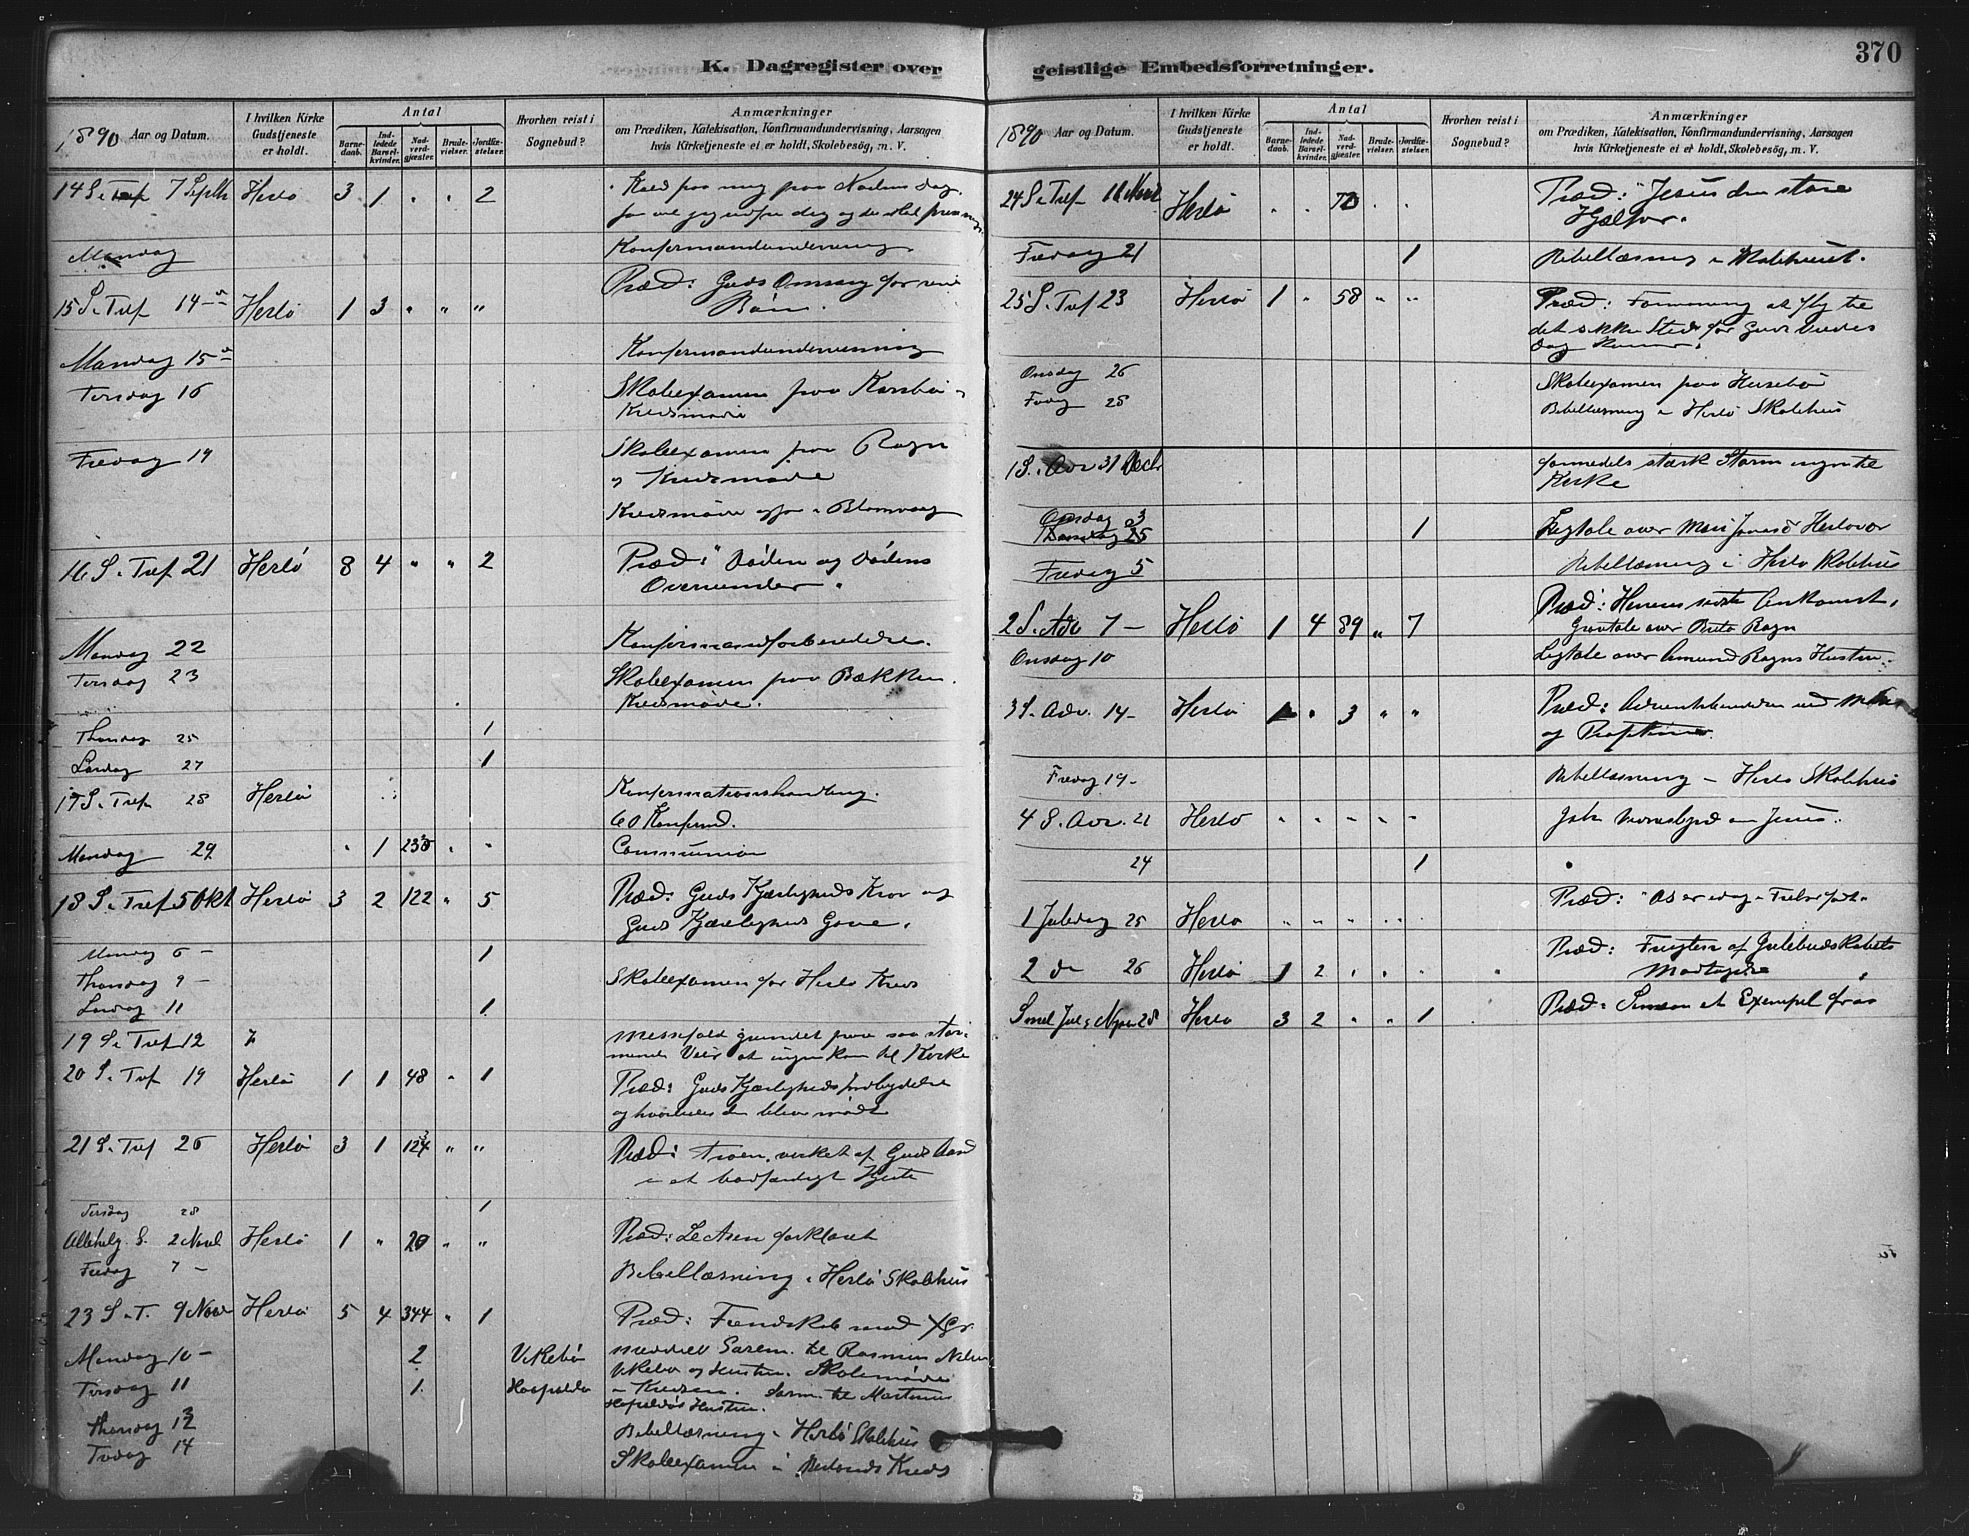 K. Dagregister over geistlige Embedsforretninger.
370
1890 Aar og Datum.
I hvilken Kirke Gudstjeneste er holdt.
Antal
Barnedaab.
Indledede Barselkvinder.
Nadverdgjæster.
Brudevielser.
Jordfæstelser.
Hvorhen reist i Sognebud?
Anmærkninger
om Prædiken, Katekisation, Konfirmandundervisning, Aarsagen
hvis Kirketjeneste ei er holdt, Skolebesøg, m. V.
14 S. e Tref 7 Septbr Herlö 3 1 " " 2 Kald paa mig paa Nødens Dag,
saa vil jeg udfri dig og du skal prise mig
Mandag Konfirmandundervisning.
15 S. Tref 14 Herlö 1 3 " " " Præd: Guds Omsorg for sine
Börn.
Mandag 15 Konfirmandundervisning
Tirsdag 16 Skoleexamen paa
Kredsmöde
Fredag 19 Skoleexamen paa Rogn
og Kredsmöde
Kredsmöde i Blomvaag
16 S. Tref 21 Herlö 8 4 " " 2 Præd: "Döden og Dödens
Overvinder".
Mandag 22 Konfirmandforberedelse.
Tirsdag 23 Skoleexamen paa Bakken.
Kredsmöde.
Thorsdag 25 1
Lördag 27 1
17 S. Tref 28 Herlö Konfirmationshandling.
60 Konfirmd.
Mandag 29 " 1 " " Communion
18 S. Tref 5 Okt Herlö 3 2 122 " 5 Præd: Guds Kjærligheds Krav og
Guds Kjærligheds Gave.
Mandag 6 – 1
Thorsdag 9 – Skoleexamen for Herlö Kreds
Lördag 11 1
19 S. Tref 12 Messefald grundet paa saa stor-
mende Veir at ingen kom til Kirke
20 S. Tref 19 Herlö 1 1 48 " 1 Præd: Guds Kjærligheds Indbydelse
og hvorledes den bliver mødt
21 S. Tref 26 Herlö 3 1 " " Præd: Troen, virket af Guds Aand
i et bodfærdigt Hjerte
Tirsdag 28 1
Allehelg. S. 2 Novb Herlö 1 " 20 " " Præd:
Fredag 7 – Bibellæsning i Herlö Skolehus
23 S. T. 9 Nov Herlö 5 4 344 " 1 Præd: Fiendskab mod
Mandag 10 – 2 Vikebö meddelt Sacrm. til Rasmus Nilsen
Vikebö og Hustru. Skolemöde
Tirsdag 11 1 i Kredsen. Sacrm. til Martinus
Hustru.
Thorsdag 13 Bibellæsning i Herlö Skolehus
Fredag 14 Skoleexamen i Kreds
1890 Aar og Datum.
I hvilken Kirke Gudstjeneste er holdt.
Antal
Barnedaab.
Indledede Barselkvinder.
Nadverdgjæster.
Brudevielser.
Jordfæstelser.
Hvorhen reist i Sognebud?
Anmærkninger
om Prædiken, Katekisation, Konfirmandundervisning, Aarsagen
hvis Kirketjeneste ei er holdt, Skolebesøg, m. V.
24 S. e Tref 16 Novb Herlö " " " " Præd: "Jesus den store
Hjælper.
Fredag 21 1 Bibellæsning i Skolehuset.
25 S. Tref 23 Herlö 1 " 58 " " Præd: Formaning at fly til
det sikre Sted før Guds Vredes
Dag kommer.
Onsdag 26 Skoleexamen paa Husebö
Fredag 28 Bibellæsning i Herlö Skolehus
1 S. Adv Decbr formedels stærk Storm ingen til
Kirke
Onsdag 3 1 Ligtale over Herlövær
Fredag 5 Bibellæsning i Herlö Skolehus
2 S. Adv 7 – Herlö 1 4 89 " 7 Præd: Herrens sidste Ankomst,
Gravtale over Brita Rogn
Onsdag 10 Ligtale over Amund Rogns Hustru.
3 S. Adv. 14 – Herlö 1 " 3 " " Præd:
og
Fredag 19 – Bibellæsning – Herlö Skolehus
4 S. Adv. 21 Herlö " " " " " Joh. Vidnesbyrd om Jesus.
24 1
1 Juledag 25 Herlö " " " " " Præd: "Os er idag en Frelser født"
2 de 26 Herlö 1 2 " " " Præd: Frugten af Julebudskabets
Modtagelse
S. mel Jul & Nyaar 28 Herlö 3 2 " " 1 Præd: Simeon et Exempel for os